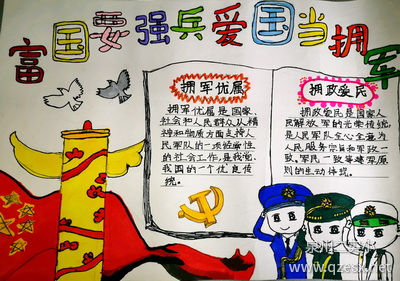 富国要强兵爱国当拥军
拥军优属
拥军优属是国家
社会和人民群众从精
神和物质方面支持人
民军队的一项经常性
的社会工作，是我党、
我国的一个优良传
统。
拥政爱民
拥政爱民是国家人
民解放军的光荣传统，
是人民军队全心全意为
人民服务宗旨和军政一
致、军民一致等建军原
则的生动体现。
www.qzesx.net